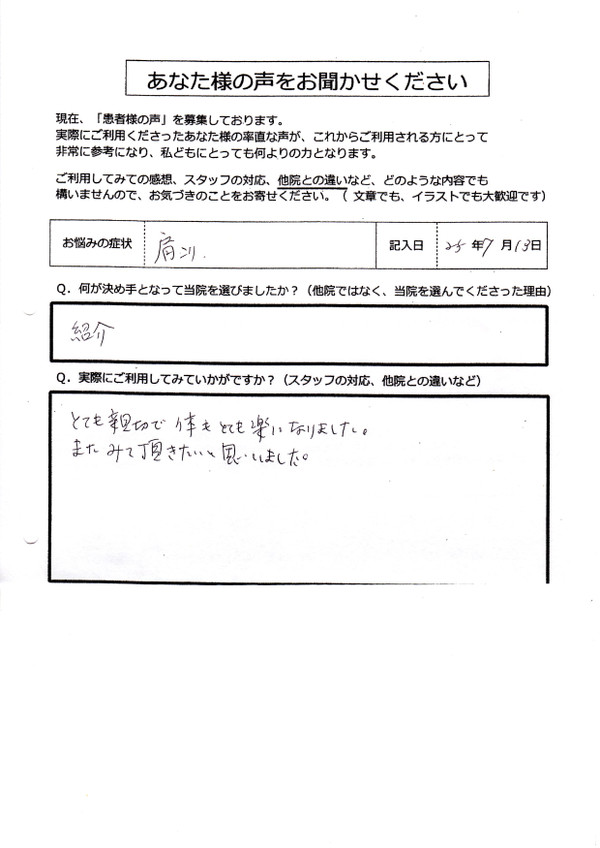 あなた様の声をお聞かせください
現在、「患者様の声」を募集しております。
実際にご利用くださったあなた様の率直な声が、これからご利用される方にとって
非常に参考になり、私どもにとっても何よりの力となります。
ご利用してみての感想、スタッフの対応、他院との違いなど、どのような内容でも
構いませんので、お気づきのことをお寄せください。（ 文章でも、イラストでも大歓迎です）
お悩みの症状 肩コリ. 記入日 25 年 7 月 13 日
Q．何が決め手となって当院を選びましたか？（他院ではなく、当院を選んでくださった理由）
紹介
Q．実際にご利用してみていかがですか？（スタッフの対応、他院との違いなど）
とても親切で体もとても楽になりました。
またみて頂きたいと思いました。